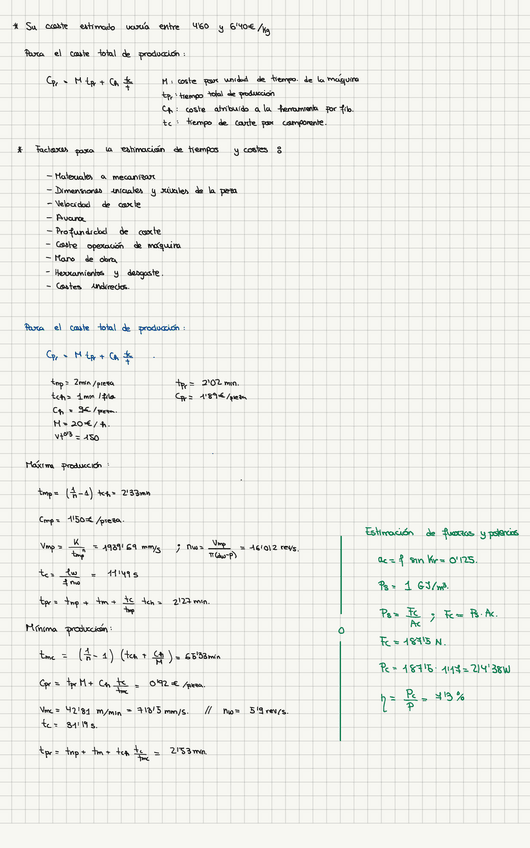 * Su coste estimado varía entre 4'60 y 6'40€/kg
Para el coste total de producción:
Cpr = M tpr + Ch tc/t
M: coste por unidad de tiempo. de la máquina
tpr: tiempo total de producción
Ch: coste atribuido a la herramienta por filo.
tc: tiempo de corte por componente.
* Factores para la estimación de tiempos y costes:
- Materiales a mecanizar
- Dimensiones iniciales y finales de la pieza
- Velocidad de corte
- Avance
- Profundidad de corte
- Coste operación de máquina
- Mano de obra
- Herramientas y desgaste.
- Costes indirectos.
Para el coste total de producción:
Cpr = M tpr + Ch tc/t
tnp = 2min/pieza
tch = 1min/filo
Ch = 9€/pieza.
M = 20€/h.
= 150
tpr = 2'02 min.
Cpr = 1'89€/pieza
Máxima producción:
tmp = (1/n - 1) tch = 2'33min
Cmp = 1'50€/pieza.
Vmp = K/tmpⁿ = 1989'69 mm/s ; nω = Vmp/π(dω-p) = 16'012 rev/s.
tc = lω/f nω = 11'49 s
tpr = tnp + tm + tc/tmp tch = 2'27 min.
Mínima producción:
tmc = (1/n - 1) (tch + Ch/M) = 65'33min
Cpr = tpr M + Ch tc/tmc = 0'92 €/pieza.
Vmc = 42'81 m/min = 713'5 mm/s. // nω = 5'9 rev/s.
tc = 31'19 s.
tpr = tnp + tm + tch tc/tmc = 2'53 min
Estimación de fuerzas y potencias
ac = f sin Kr = 0'125.
Ps = 1 GJ/m³.
Ps = Fc/Ac ; Fc = Ps·Ac.
Fc = 187'5 N.
Pc = 187'5 · 1'17 = 214'38W
η = Pc/P = 7'3 %